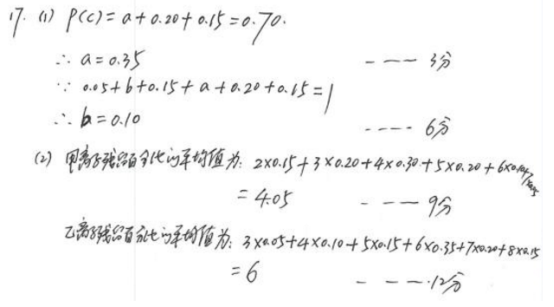 17. (1) P(C)=a+0.20+0.15=0.70.
∴ a=0.35 ---- 3分
∵ 0.05+b+0.15+a+0.20+0.15=1
∴ b=0.10 ---- 6分
(2) 甲离子残留百分比的平均值为: 2×0.15+3×0.20+4×0.30+5×0.20+6×0.10
=4.05 ---- 9分
乙离子残留百分比的平均值为: 3×0.05+4×0.10+5×0.15+6×0.35+7×0.20+8×0.15
=6 ---- 12分